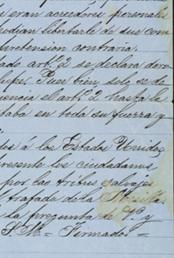 eran acreedores personales
libertarle de sus com
pretension contraria.
art. 2 se declara dero
Pues bien, solo se de
el art. 2 hasta la
estaba en toda su fuerza y
á los Estados Unidos
presente los ciudadanos
por las tribus salvajes
tratado de la Mesilla
la pregunta de
S. M. = Firmado =